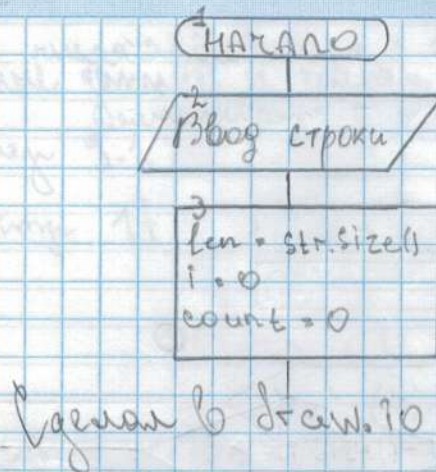 1
НАЧАЛО
2
Ввод строки
3
len = str.size()
i = 0
count = 0
Сделал в draw.io